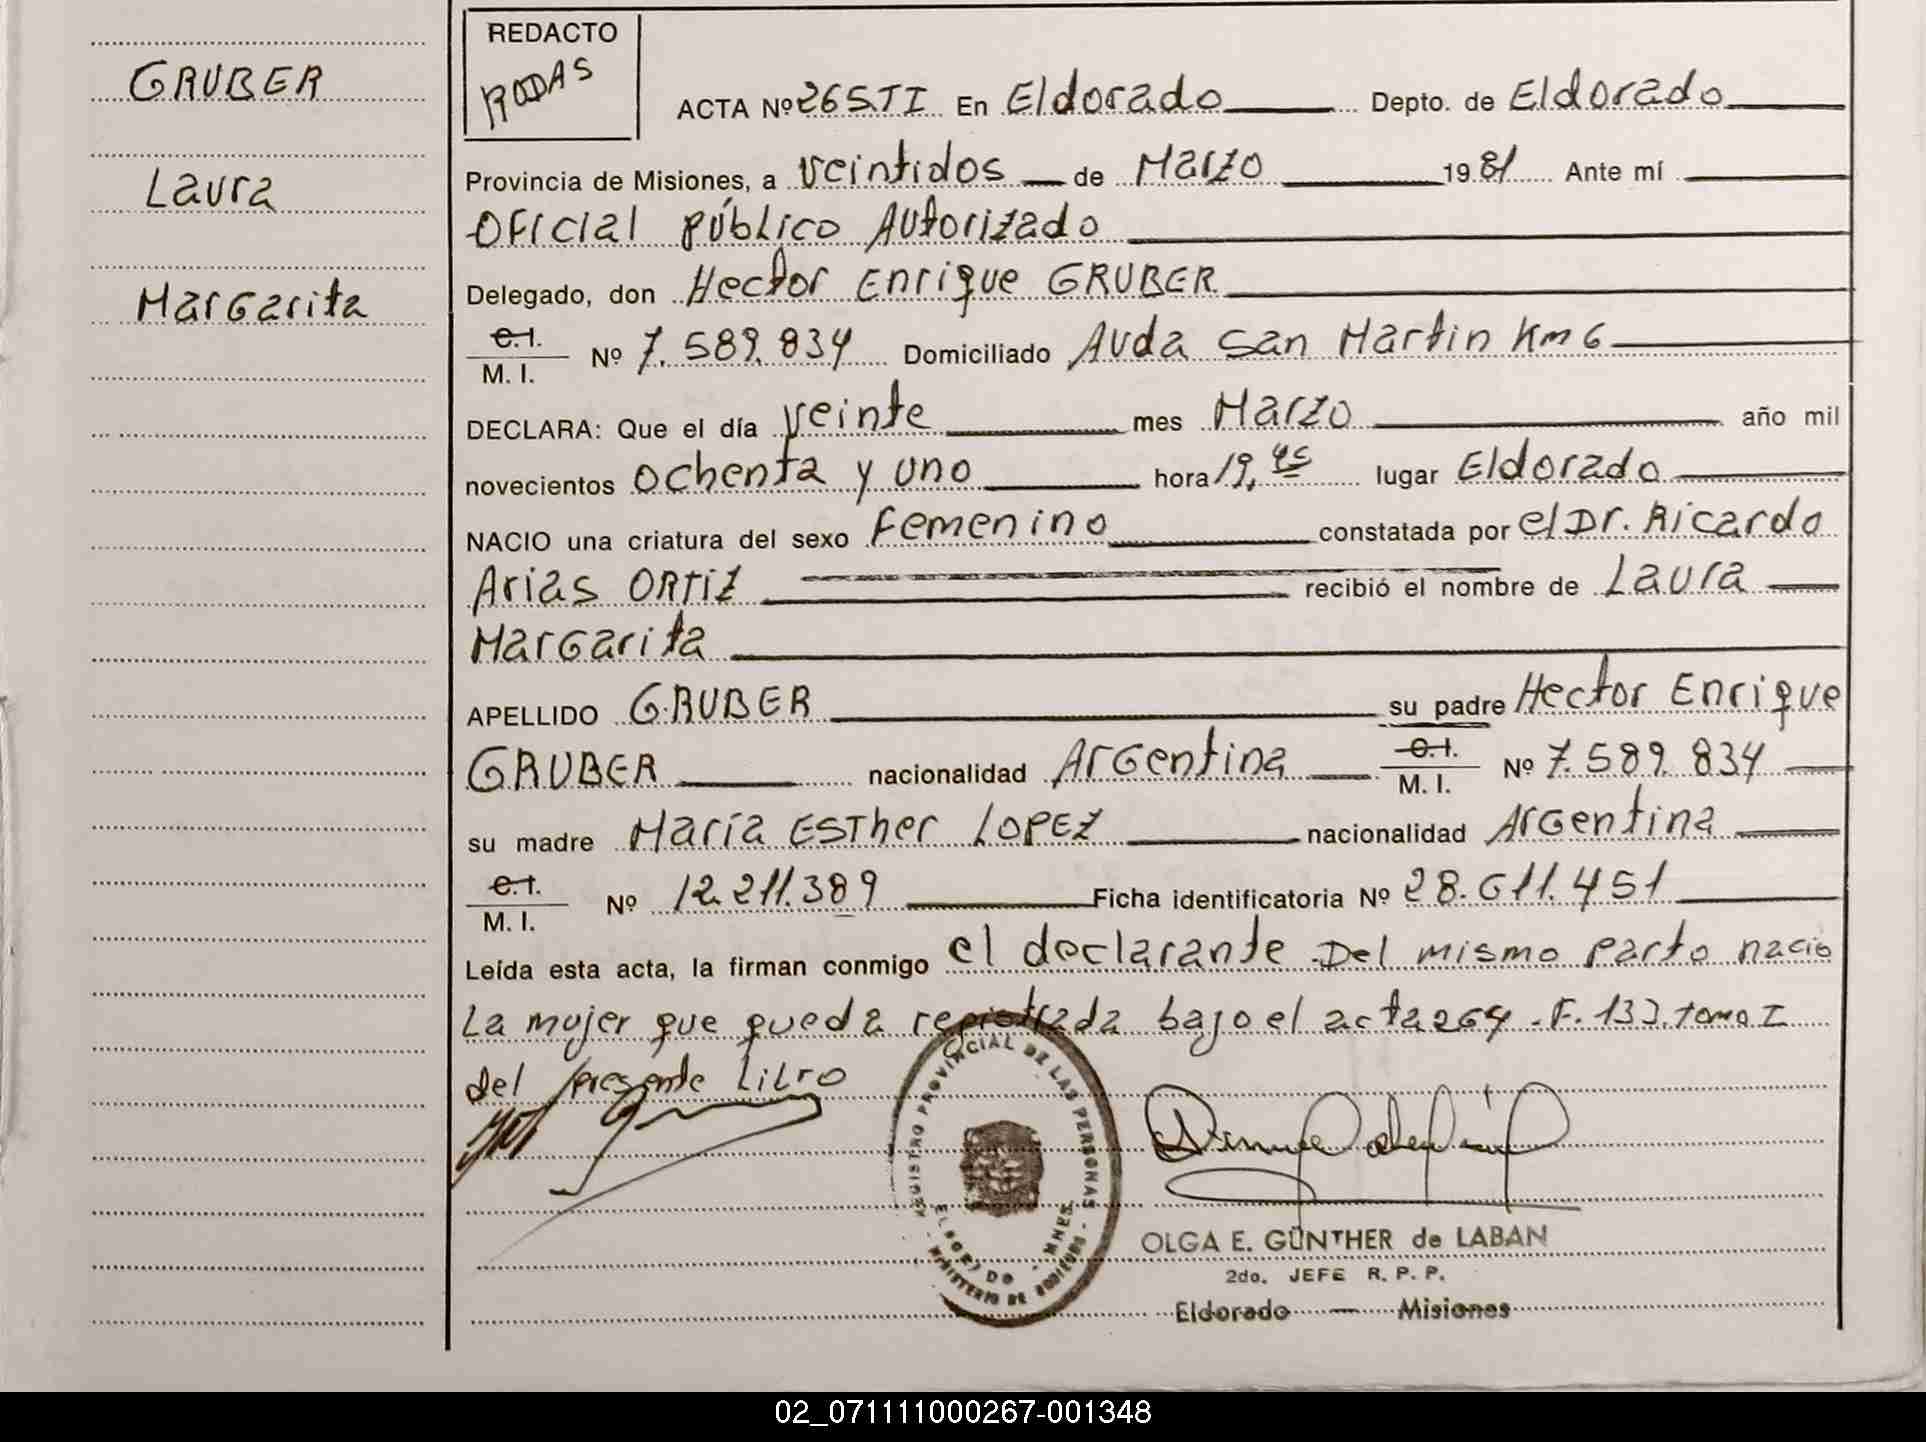 GRUBER
Laura
Margarita
REDACTO
RODAS
ACTA Nº 265.TI En Eldorado Depto. de Eldorado
Provincia de Misiones, a veintidos de Marzo 1981 Ante mí
Oficial Público Autorizado
Delegado, don Hector Enrique GRUBER
C.I.
M. I. Nº 7.589.834 Domiciliado Avda San Martin Km 6
DECLARA: Que el día veinte mes Marzo año mil
novecientos ochenta y uno hora 19,45 lugar Eldorado
NACIO una criatura del sexo Femenino constatada por el Dr. Ricardo
Arias ORTIZ recibió el nombre de Laura
Margarita
APELLIDO GRUBER su padre Hector Enrique
GRUBER nacionalidad Argentina C.I. M. I. Nº 7.589.834
su madre María ESTher LOPEZ nacionalidad Argentina
C.I.
M. I. Nº 12.211.389 Ficha identificatoria Nº 28.611.451
Leída esta acta, la firman conmigo el declarante Del mismo parto nacio
La mujer que queda registrada bajo el acta 264 . F. 133. tomo I
del presente Libro
REGISTRO PROVINCIAL DE LAS PERSONAS
ELDORADO - MNES.
MINISTERIO DE GOBIERNO
OLGA E. GÜNTHER de LABAN
2do. JEFE R. P. P.
Eldorado — Misiones
02_071111000267-001348